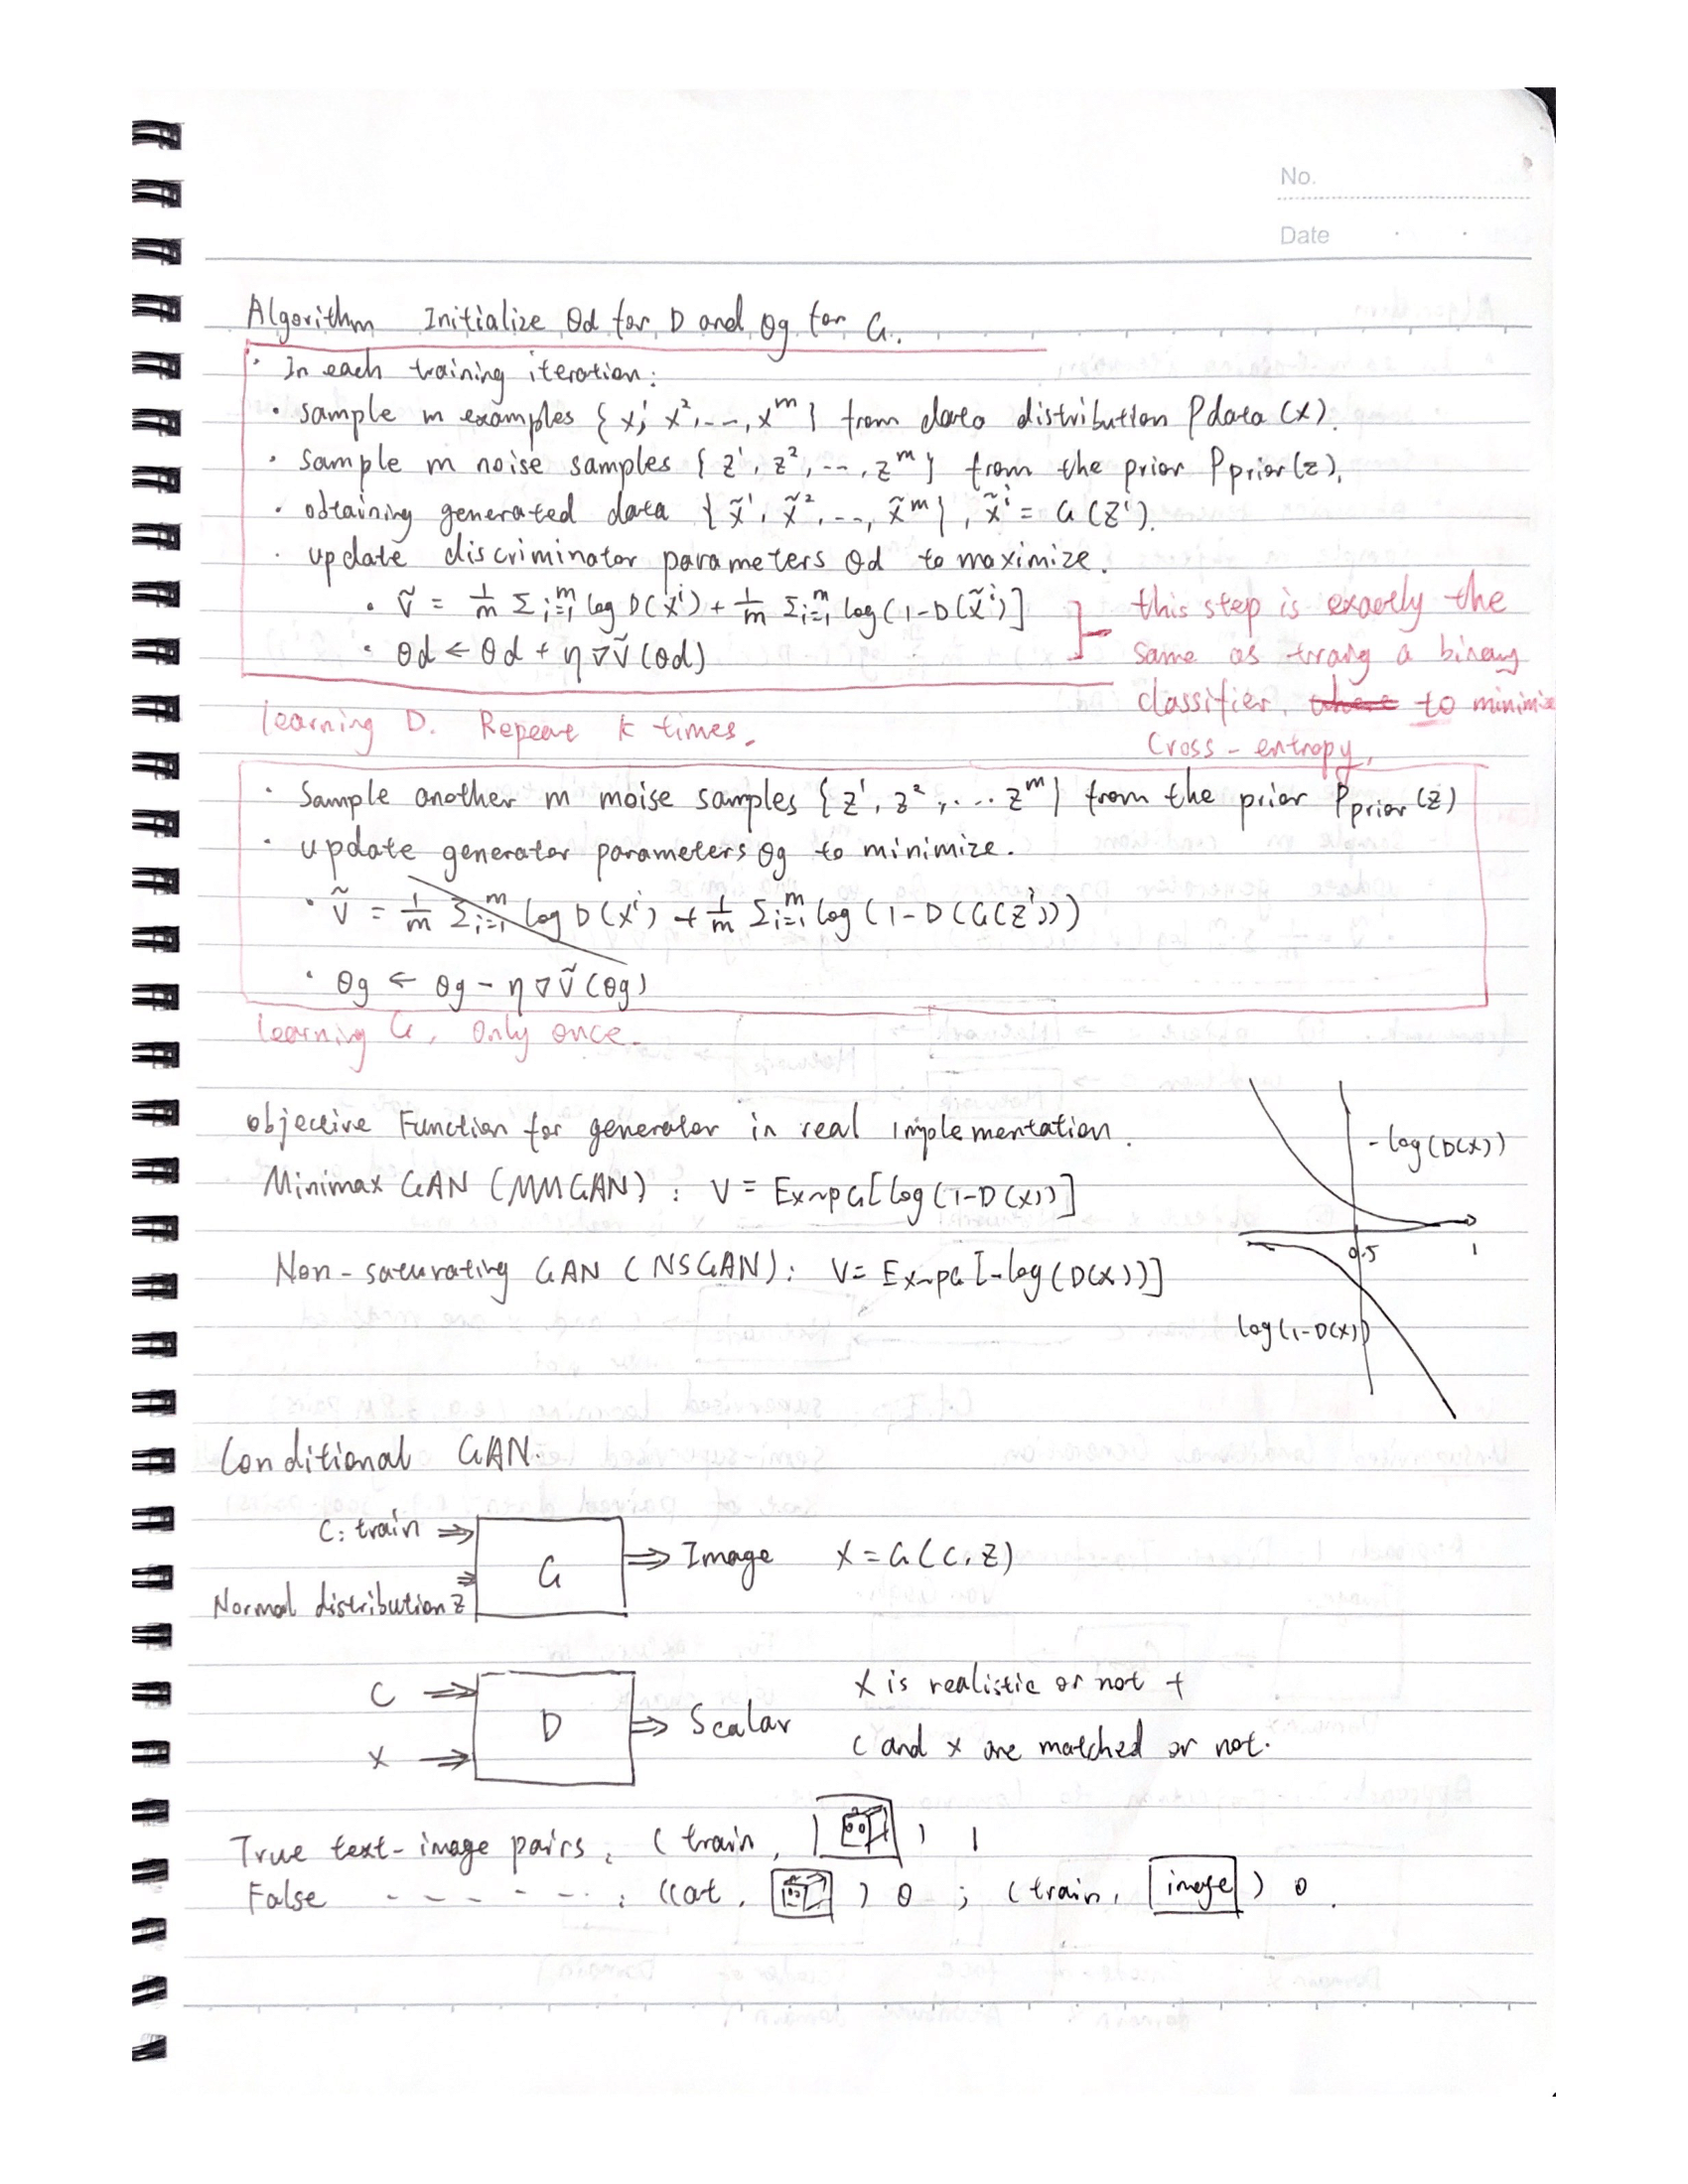 No.
Date
Algorithm Initialize θd for D and θg for G.
· In each training iteration:
· sample m examples {x¹, x², --, xᵐ} from data distribution Pdata(x).
· Sample m noise samples {z¹, z², --, zᵐ} from the prior Pprior(z).
· obtaining generated data {x̃¹, x̃², --, x̃ᵐ}, x̃ⁱ = G(zⁱ).
· update discriminator parameters θd to maximize.
· Ṽ = 1/m Σᵢ₌₁ᵐ log D(xⁱ) + 1/m Σᵢ₌₁ᵐ log(1-D(x̃ⁱ)]
· θd ← θd + η∇Ṽ(θd)
this step is exactly the
same as traing a binary
classifier. to minimize
Cross-entropy.
learning D. Repeat k times.
· Sample another m moise samples {z¹, z², ... zᵐ} from the prior Pprior(z)
· update generator parameters θg to minimize.
· Ṽ = 1/m Σᵢ₌₁ᵐ log D(xⁱ) + 1/m Σᵢ₌₁ᵐ log(1-D(G(zⁱ)))
· θg ← θg - η∇Ṽ(θg)
learning G, Only once.
objective Function for generator in real implementation.
Minimax GAN (MMGAN): V = Ex~pG[log(1-D(x))]
Non-saturating GAN (NSGAN): V = Ex~pG[-log(D(x))]
-log(D(x))
0.5
1
log(1-D(x))
Conditional GAN.
C: train ⇒
Normal distribution z ⇒
G
⇒ Image X = G(c, z)
C ⇒
X ⇒
D
⇒ Scalar
X is realistic or not +
C and x are matched or not.
True text-image pairs: (train, ) 1
False - - - - - - : (cat, ) 0 ; (train, image) 0.